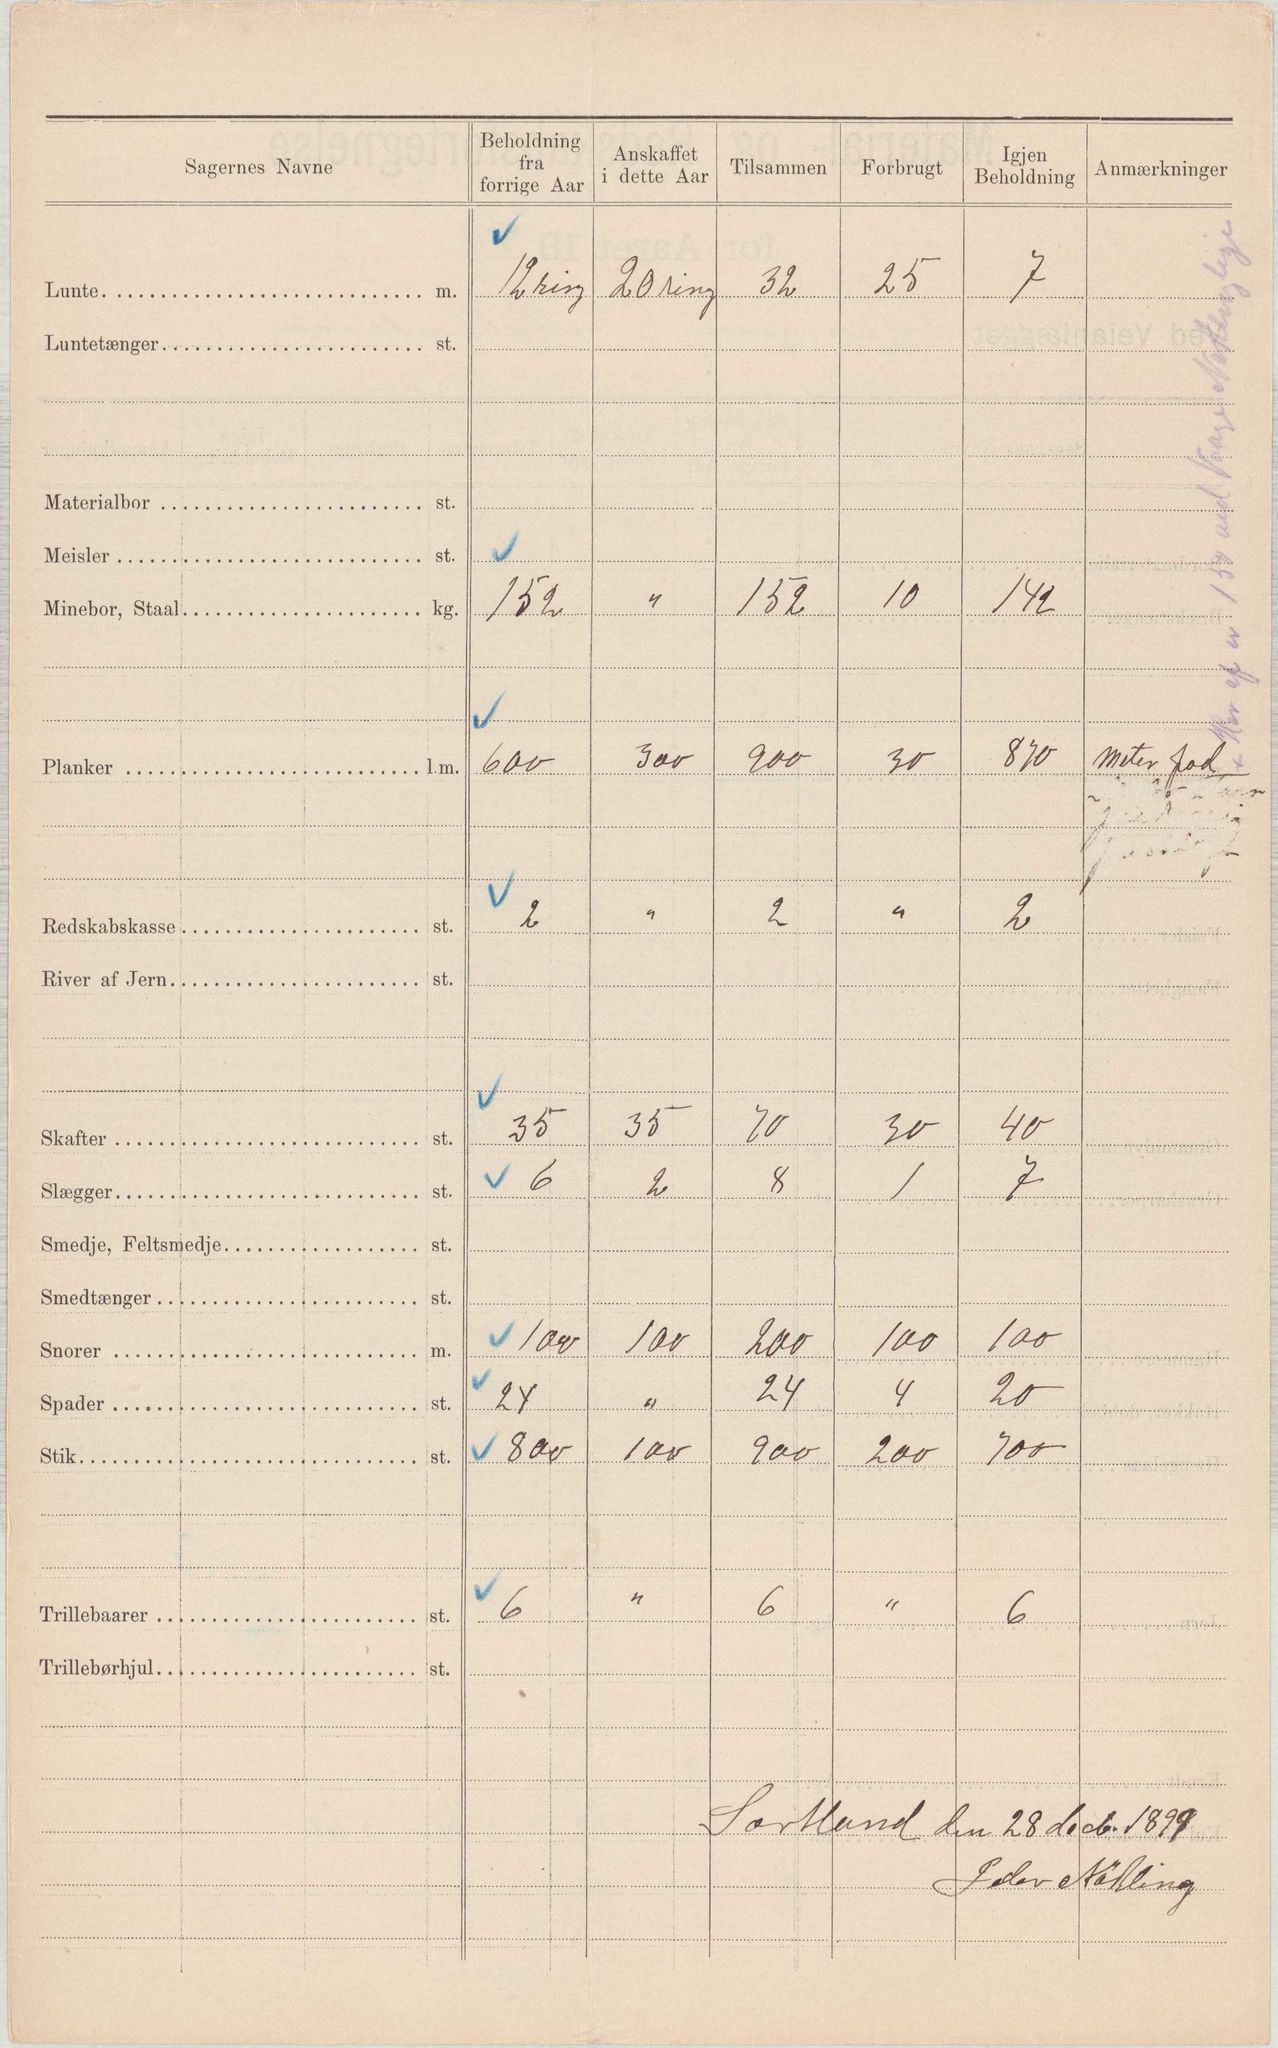 Sagernes Navne Beholdning fra forrige Aar Anskaffet i dette Aar Tilsammen Forbrugt Igjen Beholdning Anmærkninger
Lunte m. 12 ring 20 ring 32 25 7
Luntetænger st.
Materialbor st.
Meisler st.
Minebor, Staal kg. 152 " 152 10 142
Planker l.m. 600 300 900 30 870 meter
Redskabskasse st. 2 " 2 " 2
River af Jern st.
Skafter st. 35 35 70 30 40
Slægger st. 6 2 8 1 7
Smedje, Feltsmedje st.
Smedtænger st.
Snorer m. 100 100 200 100 100
Spader st. 24 " 24 4 20
Stik st. 800 100 900 200 700
Trillebaarer st. 6 " 6 " 6
Trillebørhjul st.
Sortland den 28 decb. 1899
Peder
Her af er ved